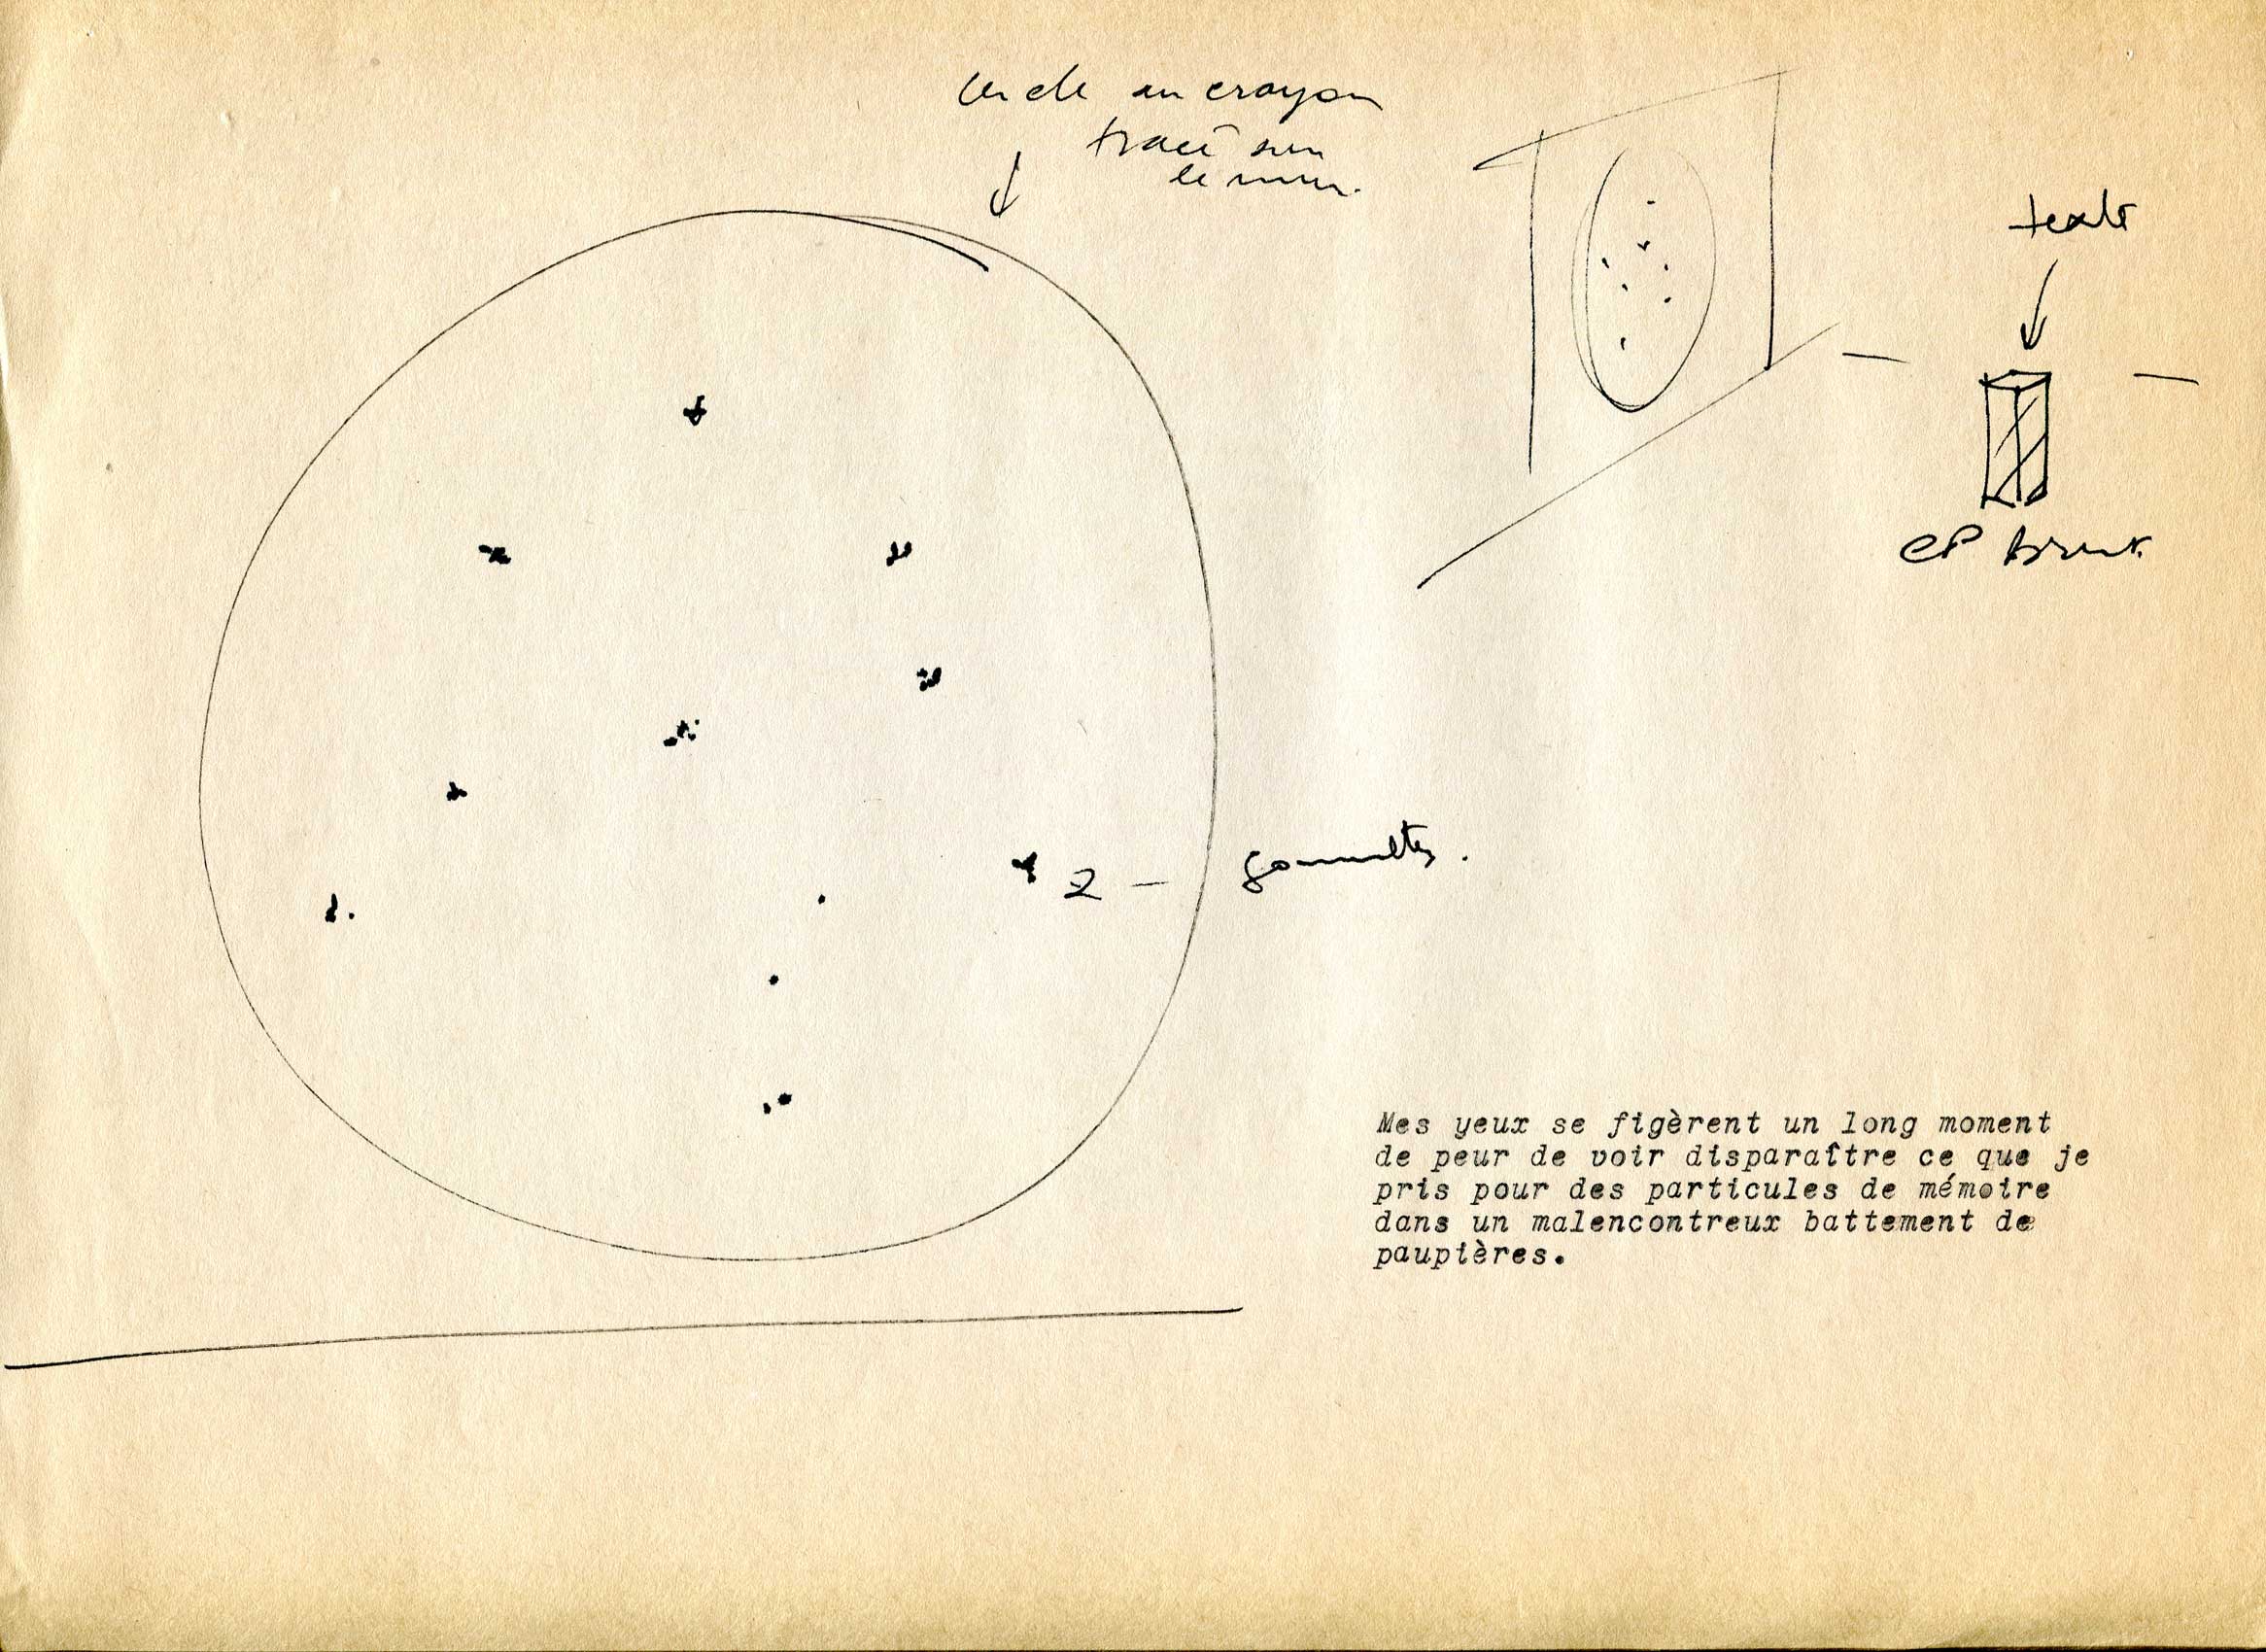 cercle au crayon
tracé sur
le mur.
texte
CP brut.
gommettes.
Mes yeux se figèrent un long moment
de peur de voir disparaître ce que je
pris pour des particules de mémoire
dans un malencontreux battement de
paupières.